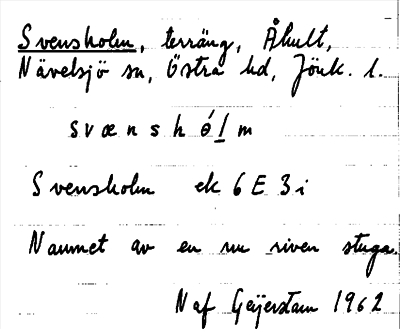 Svensholm, terräng, Åhult,
Nävelsjö sn, Östra hd, Jönk. l.
svænshólm
Svensholm ek 6E 3i
Namnet av en nu riven stuga.
N af Geijerstam 1962